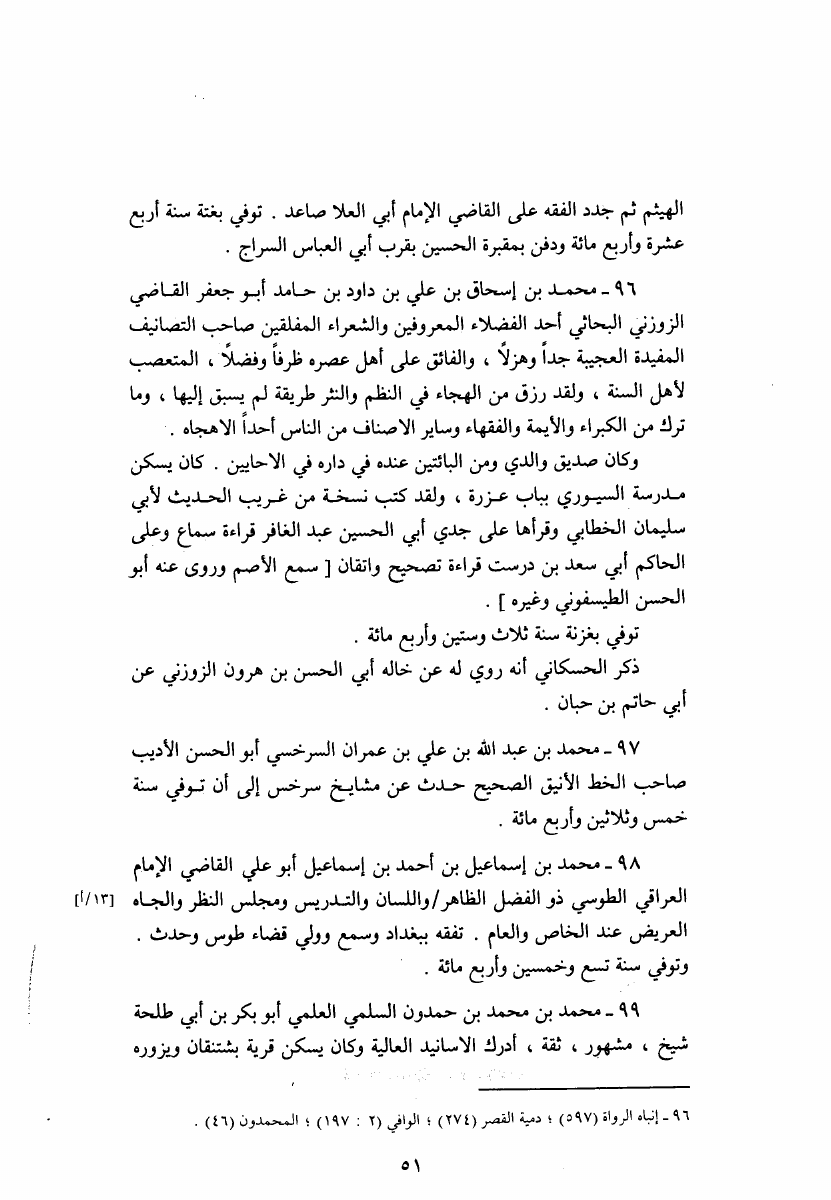 الهيثم ثم جدد الفقه على القاضي الإمام أبي العلا صاعد . توفي بغتة سنة أربع
عشرة وأربع مائة ودفن بمقبرة الحسين بقرب أبي العباس السراج .
٩٦ - محمد بن إسحاق بن علي بن داود بن حامد أبو جعفر القاضي
الزوزني البحاثي أحد الفضلاء المعروفين والشعراء المفلقين صاحب التصانيف
المفيدة العجيبة جداً وهزلاً ، والفائق على أهل عصره ظرفاً وفضلاً ، المتعصب
لأهل السنة ، ولقد رزق من الهجاء في النظم والنثر طريقة لم يسبق إليها ، وما
ترك من الكبراء والأيمة والفقهاء وساير الاصناف من الناس أحداً الاهجاه .
وكان صديق والدي ومن البائتين عنده في داره في الاحايين . كان يسكن
مدرسة السيوري بباب عزرة ، ولقد كتب نسخة من غريب الحديث لأبي
سليمان الخطابي وقرأها على جدي أبي الحسين عبد الغافر قراءة سماع وعلى
الحاكم أبي سعد بن درست قراءة تصحيح واتقان [ سمع الأصم وروى عنه أبو
الحسن الطيسفوني وغيره ] .
توفي بغزنة سنة ثلاث وستين وأربع مائة .
ذكر الحسكاني أنه روي له عن خاله أبي الحسن بن هرون الزوزني عن
أبي حاتم بن حبان .
٩٧ - محمد بن عبد الله بن علي بن عمران السرخسي أبو الحسن الأديب
صاحب الخط الأنيق الصحيح حدث عن مشايخ سرخس إلى أن توفي سنة
خمس وثلاثين وأربع مائة .
٩٨ - محمد بن إسماعيل بن أحمد بن إسماعيل أبو علي القاضي الإمام
العراقي الطوسي ذو الفضل الظاهر/واللسان والتدريس ومجلس النظر والجاه [١٣/أ]
العريض عند الخاص والعام . تفقه ببغداد وسمع وولي قضاء طوس وحدث .
وتوفي سنة تسع وخمسين وأربع مائة .
٩٩ - محمد بن محمد بن حمدون السلمي العلمي أبو بكر بن أبي طلحة
شيخ ، مشهور ، ثقة ، أدرك الاسانيد العالية وكان يسكن قرية بشتنقان ويزوره
٩٦ - إنباه الرواة (٥٩٧) ؛ دمية القصر (٢٧٤) ؛ الوافي (٢ : ١٩٧) ؛ المحمدون (٤٦) .
٥١